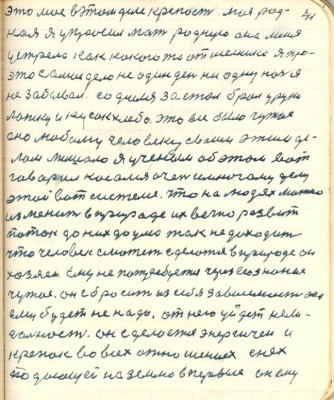 это мое в этом деле крепост. моя род-
ная я упросил мат родную она меня
устрела как какого то отшелника я про-
это самое дело не один ден ни одну ноч я
не забывал. со дня за стол брал у руки
ложку и кусок хлеба, это все было чужое
оно любому человеку своим этим де-
лом мишало я ученим об этом вот
говорил косался очен многому делу
этой вот системе. что на людях можно
изменит в природе их вечно развит
поток до них до ума так не доходит
что человек сможет сделатся в природе он
хозяем ему не потребуется через сознание
чужое. он сбросит из себя зависимость она
ему будет не надо, от него уйдет нем-
ощность. он сделается энергичен и
крепок во всех отношениях снег
подающей на землю в первые он ему